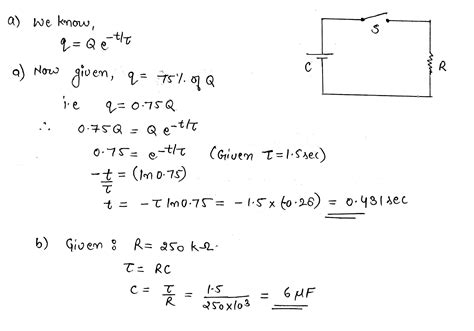 a) we know,
q = Q e^-t/τ
a) Now given, q = 75% of Q
i.e q = 0.75Q
∴ 0.75Q = Q e^-t/τ
0.75 = e^-t/τ (Given τ=1.5sec)
-t/τ = (ln 0.75)
t = -τ ln 0.75 = -1.5 × (-0.26) = 0.431 sec
b) Given : R = 250 k-Ω.
τ = RC
C = τ/R = 1.5/250×10^3 = 6 μF
S
C
R